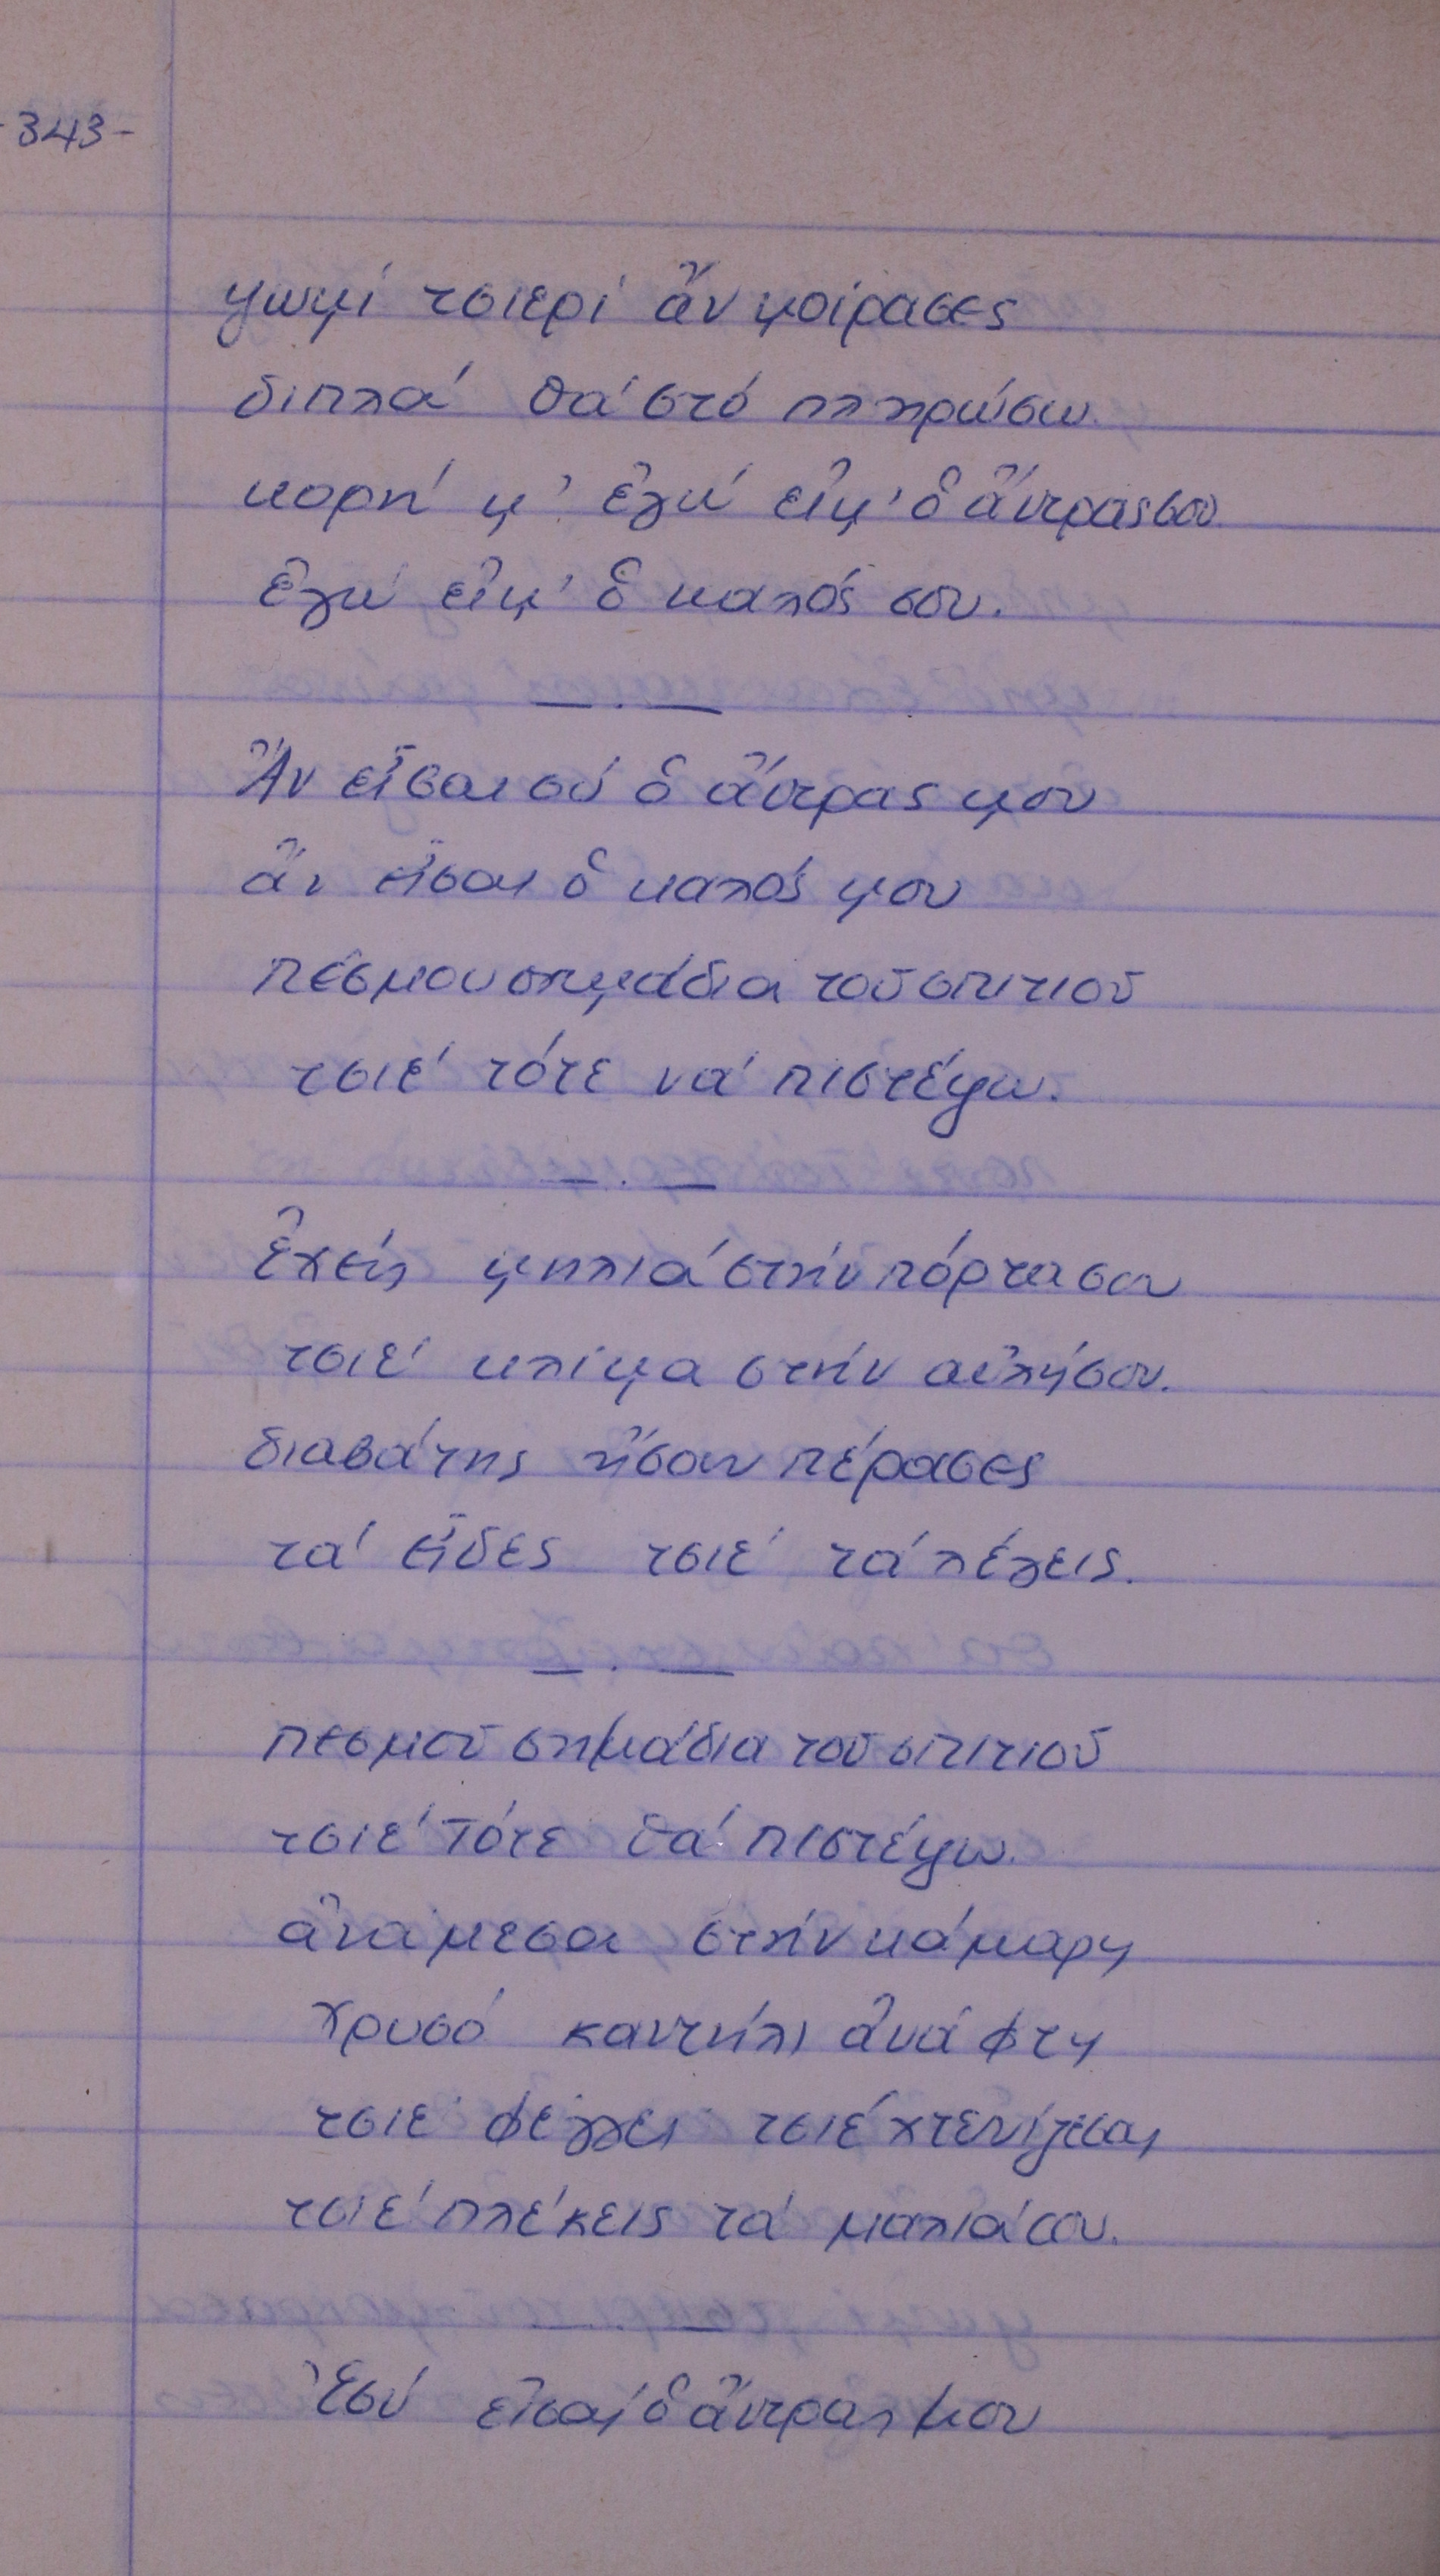 -343-
ψωμί τσιερί ἄν μοίρασες
διπλά θά στό πληρώσω.
κορή μ' ἐγώ εἶμ' ὁ ἄντρας σου
ἐγώ εἶμ' ὁ καλός σου.
— . —
Ἄν εἶσαι σύ ὁ ἄντρας μου
ἄν εἶσαι ὁ καλός μου
πέσμου σημάδια τοῦ σπιτιοῦ
τσιέ τότε νά πιστέψω.
— . —
Ἔχεις μηλιά στήν πόρτα σου
τσιέ κλίμα στήν αὐλή σου.
διαβάτης ἤσουν πέρασες
τά εἶδες τσιέ τά λέγεις.
— . —
πεσμοῦ σημάδια τοῦ σπιτιοῦ
τσιέ τότε θά πιστέψω.
ἀνάμεσα στήν κάμαρη
χρυσό καντήλι ἀνάφτη
τσιέ φέγγει τσιέ χτενίζεσαι
τσιέ πλέκεις τά μαλιά σου.
— . —
Ἐσύ εἶσαι ὁ ἄντρας μου